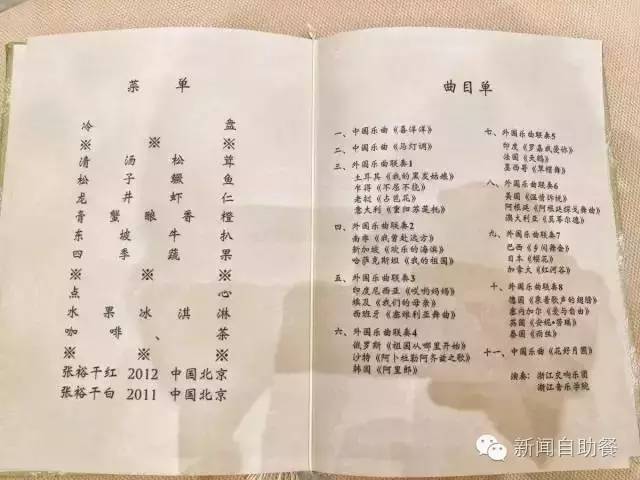 菜 单
冷 盘
※ ※
清 汤 松 茸
松 子 鳜 鱼
龙 井 虾 仁
膏 蟹 酿 香 橙
东 坡 牛 扒
四 季 蔬 果
※ ※ ※
点 心
水 果 冰 淇 淋
咖 啡 、 茶
※ ※ ※
张裕干红 2012 中国北京
张裕干白 2011 中国北京
曲目单
一、中国乐曲《喜洋洋》
二、中国乐曲《马灯调》
三、外国乐曲联奏1
土耳其《我的黑发姑娘》
乍得《不屈不挠》
老挝《占芭花》
意大利《重归苏莲托》
四、外国乐曲联奏2
南非《我曾赴远方》
新加坡《欢乐的海滨》
哈萨克斯坦《我的祖国》
五、外国乐曲联奏3
印度尼西亚《哎哟妈妈》
埃及《我们的母亲》
西班牙《塞维利亚舞曲》
六、外国乐曲联奏4
俄罗斯《祖国从哪里开始》
沙特《阿卜杜勒阿齐兹之歌》
韩国《阿里郎》
七、外国乐曲联奏5
印度《罗嘉我爱你》
法国《天鹅》
墨西哥《草帽舞》
八、外国乐曲联奏6
美国《温情诉说》
阿根廷《阿根廷探戈舞曲》
澳大利亚《莫琴尔德》
九、外国乐曲联奏7
巴西《乡间舞会》
日本《樱花》
加拿大《红河谷》
十、外国乐曲联奏8
德国《乘着歌声的翅膀》
塞内加尔《爱与自由》
英国《安妮•劳瑞》
泰国《雨丝》
十一、中国乐曲《花好月圆》
演奏：浙江交响乐团
浙江音乐学院
新闻自助餐